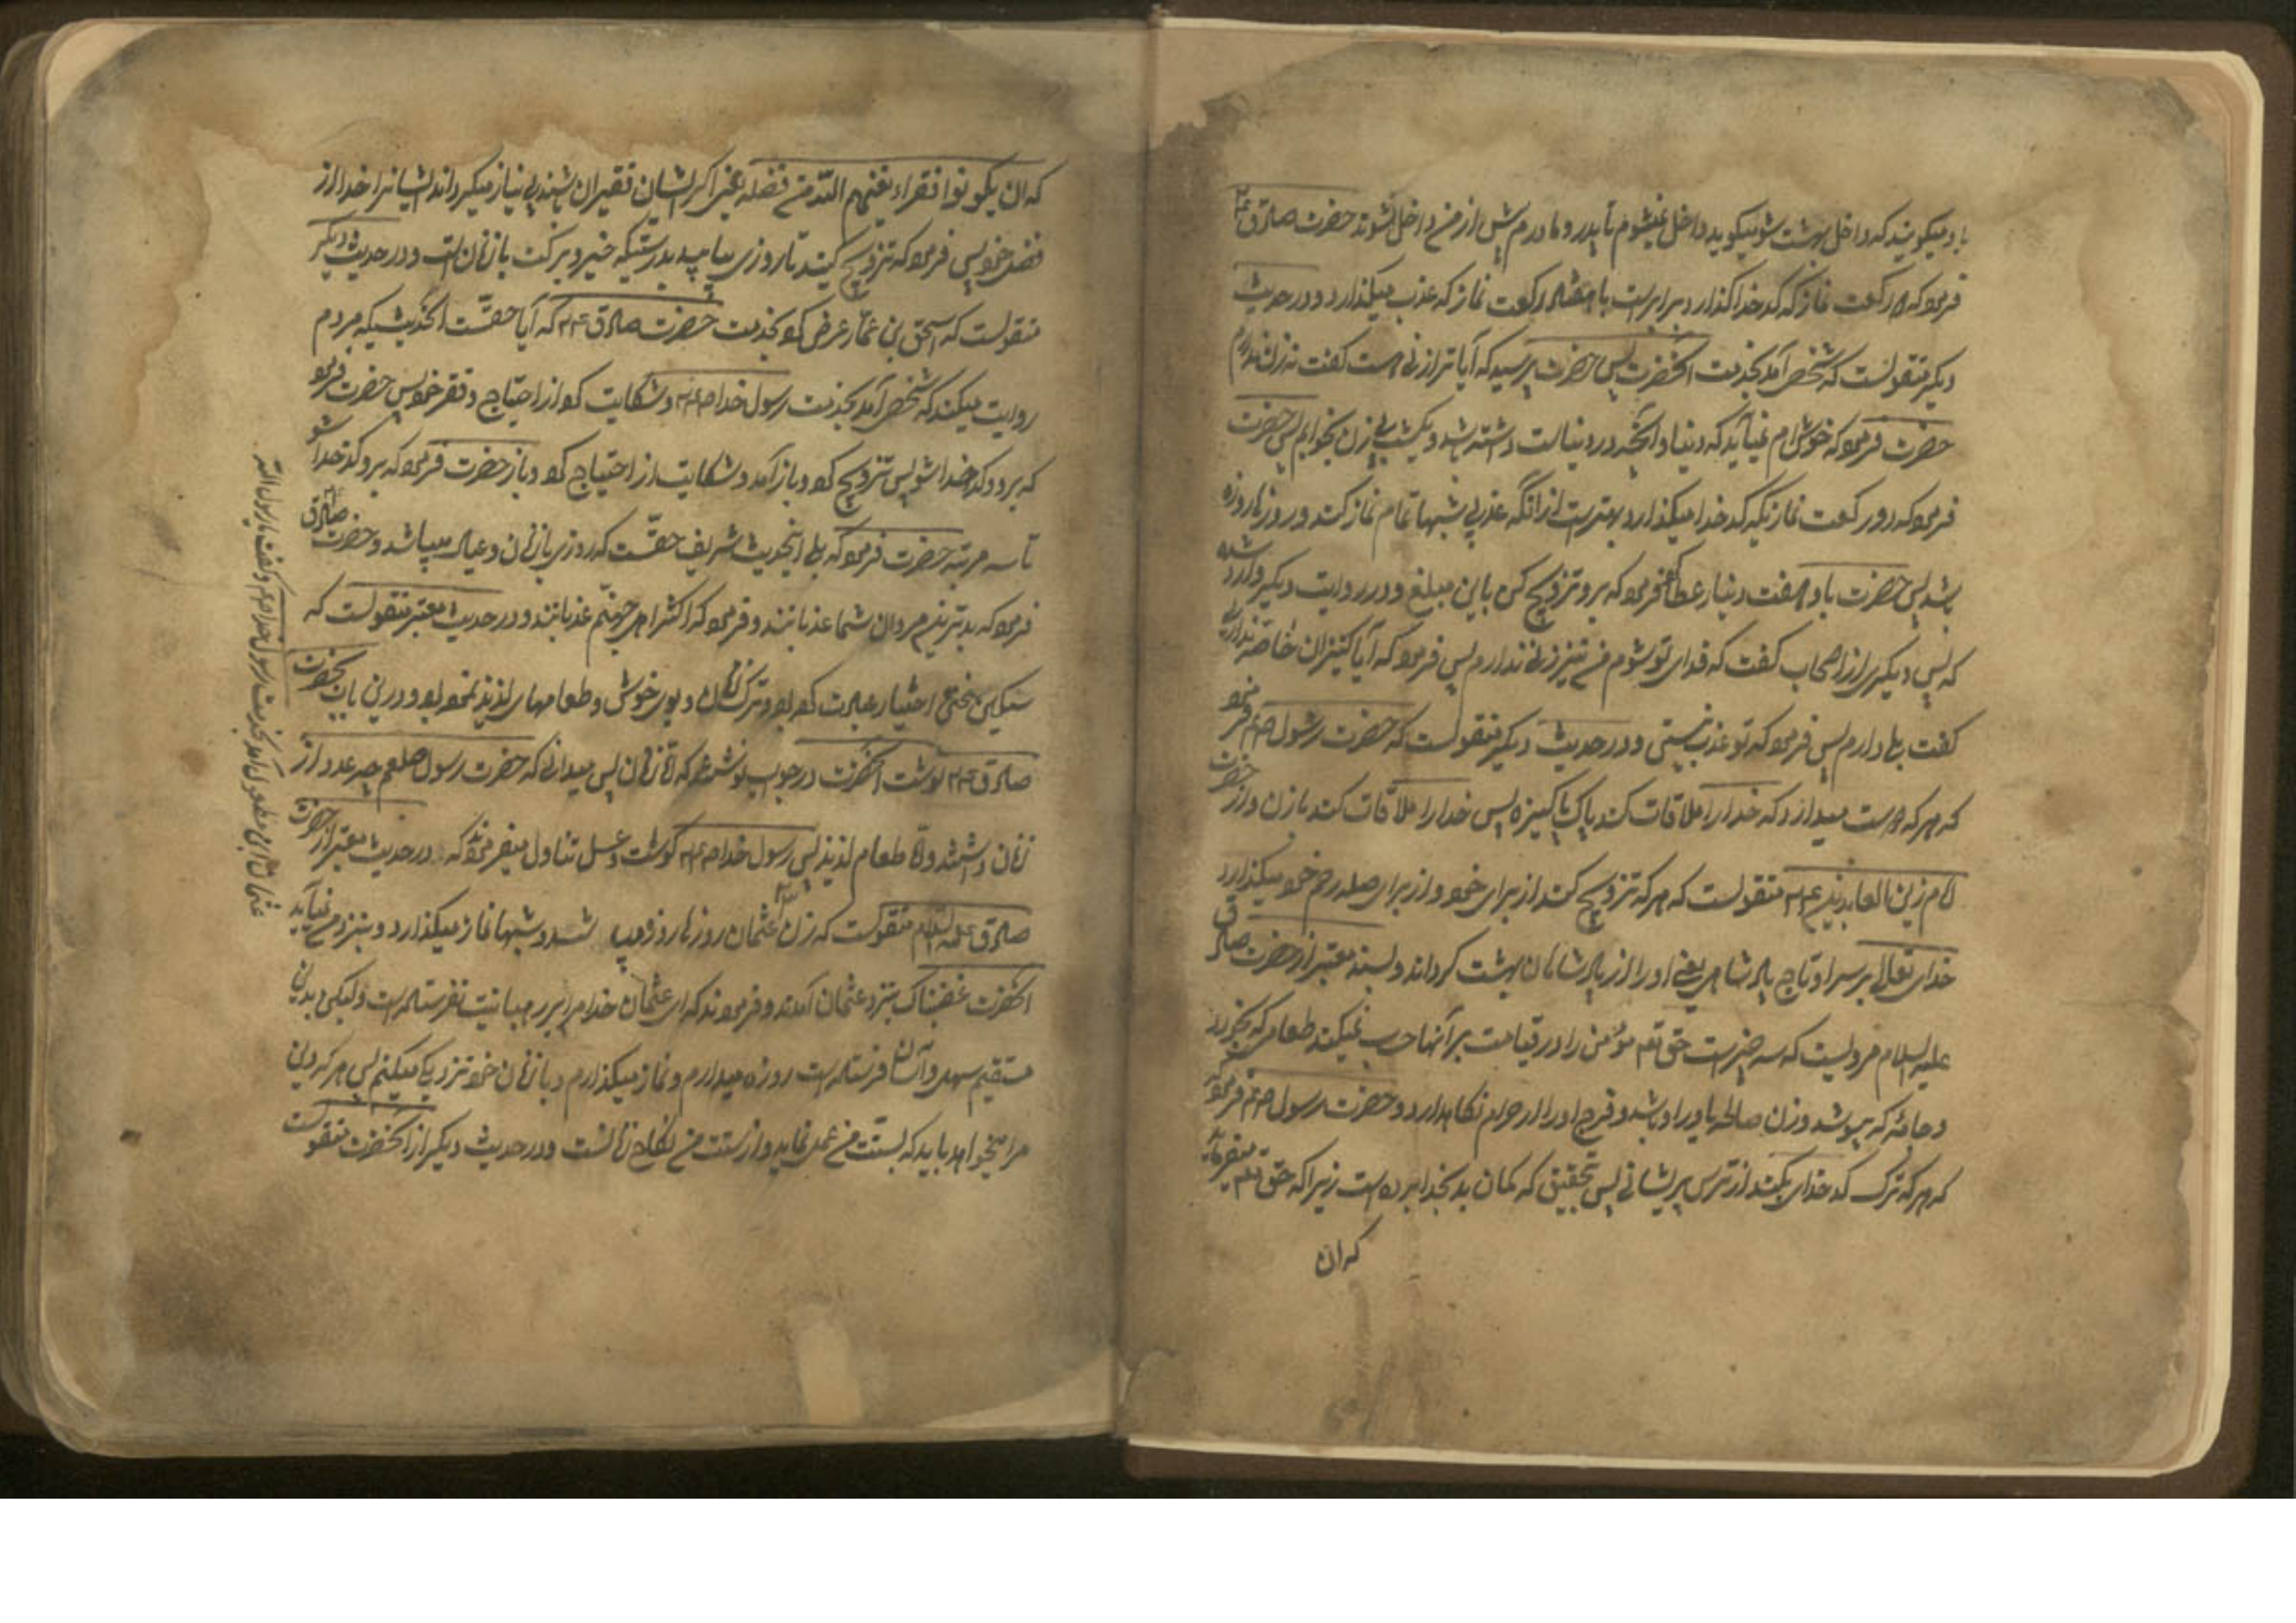 باو میگویند که داخل بهشت شو میگوید داخل نمیشوم تا پدر و مادرم پیش از من داخل نشوند حضرت صادق ع م
فرمود که دو رکعت نماز که کدخدا گذارد برابرست با هفتاد رکعت نماز که عذب میگذارد و در حدیث
دیگر منقولست که شخصی آمد بخدمت آنحضرت پس حضرت پرسید که آیا ترا زنی هست گفت نه زن ندارم
حضرت فرمود که خوشم نمی‌آید که دنیا و آنچه در دنیاست داشته باشم و یکشب بی زن بخوابم پس حضرت
فرمود که دو رکعت نمازیکه کدخدا میگذارد بهترست از آنکه عذبی شبها تمام نماز کند و روزها روزه
باشد پس حضرت باو هفت دینار عطا فرمود که برو تزویج کن باین مبلغ و در روایت دیگر وارد شده
که پس دیگری از اصحاب گفت که فدای تو شوم من نیز زن ندارم پس فرمود که آیا کنیزان خاصه نداری
گفت بلی دارم پس فرمود که تو عذب نیستی و در حدیث دیگر منقولست که حضرت رسول صلعم فرمود
که هر که دوست میدارد که خدا را ملاقات کند پاک و پاکیزه پس خدا را ملاقات کند با زن و از حضرت
امام زین العابدین ع م منقولست که هر که تزویج کند از برای خدا و از برای صله رحم خود میگذارد
خدای تعالی بر سر او تاج پادشاهی یعنی او را از پادشاهان بهشت گرداند و بسند معتبر از حضرت صادق
علیه السلام مرویست که سه چیزست حق تعم مؤمن را در قیامت بر آنها حساب نمیکند طعامی که بخورد
و جامه که بپوشد و زن صالحه یاور او باشد و فرج او را از حرام نگاهدارد و حضرت رسول صلعم فرمود که
که هر که ترک کدخدای بکند از ترس پریشانی پس بتحقیق که گمان بد بخدا برده است زیرا که حق تعم میفرماید
که ان
که ان یکونوا فقراء یغنهم الله من فضله یعنی اگر ایشان فقیران باشند بی نیاز میگرداند ایشانرا خدا از
فضل خویش فرمود که تزویج کنید تا روزی بیابید بدرستیکه خیر و برکت با زنان است و در حدیث دیگر
منقولست که اسحق بن عمار عرض کرد بخدمت حضرت صادق ع م که آیا حقست الحدیثیکه مردم
روایت میکنند که شخصی آمد بخدمت رسول خدا صلعم و شکایت کرد از احتیاج و فقر خویش حضرت فرمود
که برو و کدخدا شو پس تزویج کرد و باز آمد و شکایت از احتیاج کرد و باز حضرت فرمود که برو کدخدا شو
تا سه مرتبه حضرت فرمود که بلی اینحدیث شریف حقست که روزی با زنان و عیال میباشد و حضرت صادق
فرمود که بدترین مردان شما عذبانند و فرمود که اکثر اهل جهنم عذبانند و در حدیث معتبر منقولست که
سکین نخعی اختیار عبادت کرده بود و ترک زنان و بوی خوش و طعامهای لذیذ نموده بود و درین باب بحضرت
صادق ع م نوشت آنحضرت در جواب نوشته که اما زنان پس میدانی که حضرت رسول صلعم چه عدد از
زنان داشتند و اما طعام لذیذ پس رسول خدا صلعم گوشت و عسل تناول میفرمودند که در حدیث معتبر از حضرت
صادق علیه السلام منقولست که زن عثمان روزها روزه میباشد و شبها نماز میگذارد و بنزد من نمی‌آید
آنحضرت غضبناک بنزد عثمان آمدند و فرمودند که ای عثمان خدا مرا بر رهبانیت نفرستاده است ولیکن بدین
مستقیم سهل و آسان فرستاده است روزه میدارم و نماز میگذارم و با زنان خود نزدیکی میکنم پس هر که دین
مرا میخواهد باید که بسنت من عمل نماید و از سنت من نکاح زنانست و در حدیث دیگر از آنحضرت منقولست